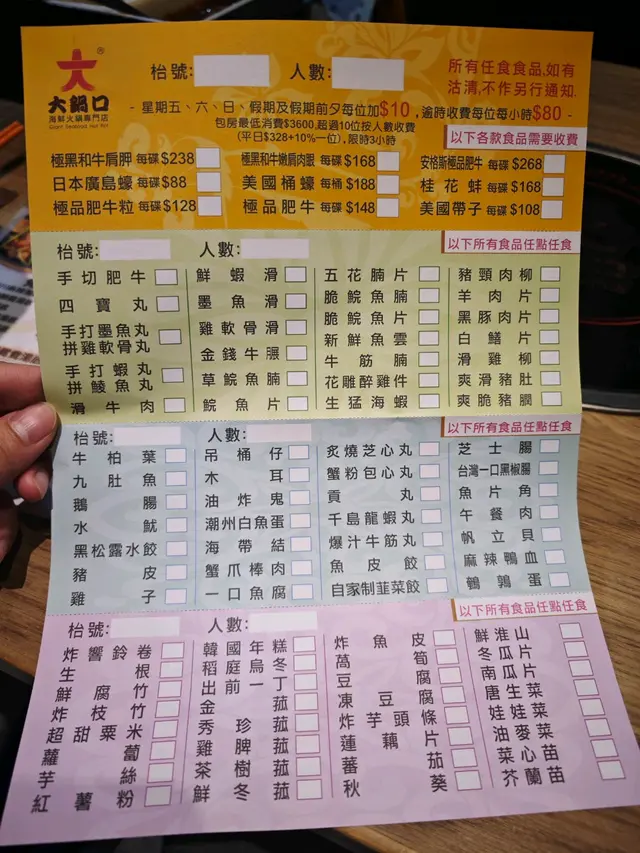 大鍋口
®
海鮮火鍋專門店
Giant Seafood Hot Pot
枱號: 人數:
所有任食食品,如有
沽清,不作另行通知.
- 星期五、六、日、假期及假期前夕每位加$10,逾時收費每位每小時$80 -
包房最低消費$3600,超過10位按人數收費
(平日$328+10%一位),限時3小時
以下各款食品需要收費
極黑和牛肩胛 每碟$238 極黑和牛嫩肩肉眼 每碟$168 安格斯極品肥牛 每碟$268
日本廣島蠔 每碟$88 美國桶蠔 每桶$188 桂花蚌 每碟$168
極品肥牛粒 每碟$128 極品肥牛 每碟$148 美國帶子 每碟$108
枱號: 人數: 以下所有食品任點任食
手切肥牛
四寶丸
手打墨魚丸
拼雞軟骨丸
手打蝦丸
拼鯪魚丸
滑牛肉
鮮蝦滑
墨魚滑
雞軟骨滑
金錢牛𦟌
草鯇魚腩
鯇魚片
五花腩片
脆鯇魚腩
脆鯇魚片
新鮮魚雲
牛筋腩
花雕醉雞件
生猛海蝦
豬頸肉柳
羊肉片
黑豚肉片
白鱔片
滑雞柳
爽滑豬肚
爽脆豬膶
枱號: 人數: 以下所有食品任點任食
牛柏葉
九肚魚
鵝腸
水魷
黑松露水餃
豬皮
雞子
吊桶仔
木耳
油炸鬼
潮州白魚蛋
海帶結
蟹爪棒肉
一口魚腐
炙燒芝心丸
蟹粉包心丸
貢丸
千島龍蝦丸
爆汁牛筋丸
魚皮餃
自家制韮菜餃
芝士腸
台灣一口黑椒腸
魚片角
午餐肉
帆立貝
麻辣鴨血
鵪鶉蛋
枱號: 人數: 以下所有食品任點任食
炸響鈴卷
生根
鮮腐竹
炸枝竹
超甜粟米
蘿蔔
芋絲
紅薯粉
韓國年糕
稻庭烏冬
出前一丁
金菇
秀珍菇
雞脾菇
茶樹菇
鮮冬菇
炸魚皮
萵筍
豆腐
凍豆腐
炸芋頭條
蓮藕片
蕃茄
秋葵
鮮淮山
冬瓜片
南瓜片
唐生菜
娃娃菜
油麥菜
菜心苗
芥蘭苗